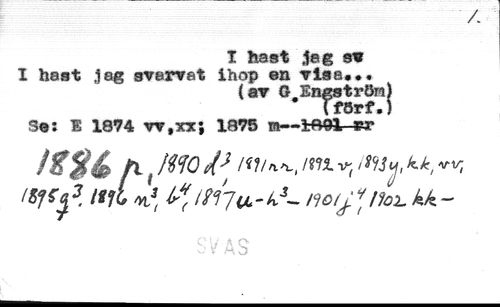 1.
I hast jag sv
I hast jag svarvat ihop en visa...
(av G.Engström)
(förf.)
Se: E 1874 vv,xx; 1875 m--1891 rr
1886 p, 1890 d³, 1891 nr, 1892 v, 1893 y, kk, vv,
1895 q³, 1896 n³, b⁴, 1897 u-h³- 1901 j⁴, 1902 kk-
SVAS